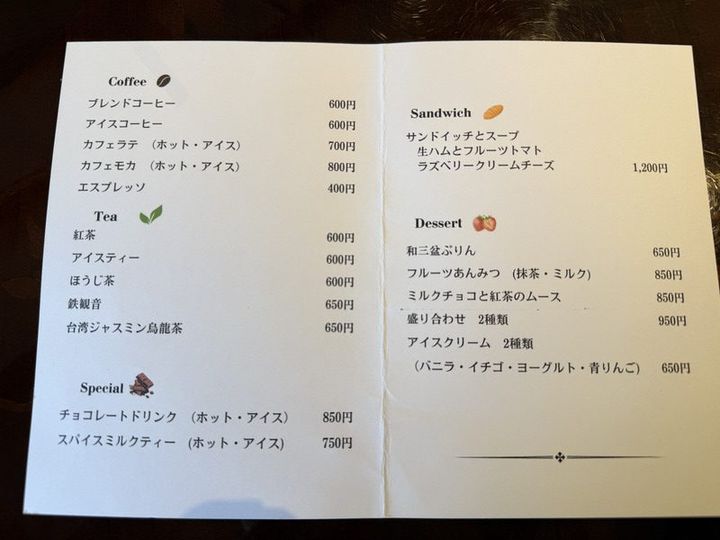 Coffee
ブレンドコーヒー 600円
アイスコーヒー 600円
カフェラテ （ホット・アイス） 700円
カフェモカ （ホット・アイス） 800円
エスプレッソ 400円
Tea
紅茶 600円
アイスティー 600円
ほうじ茶 600円
鉄観音 650円
台湾ジャスミン烏龍茶 650円
Special
チョコレートドリンク （ホット・アイス） 850円
スパイスミルクティー （ホット・アイス） 750円
Sandwich
サンドイッチとスープ
生ハムとフルーツトマト
ラズベリークリームチーズ 1,200円
Dessert
和三盆ぷりん 650円
フルーツあんみつ （抹茶・ミルク） 850円
ミルクチョコと紅茶のムース 850円
盛り合わせ 2種類 950円
アイスクリーム 2種類
（バニラ・イチゴ・ヨーグルト・青りんご） 650円